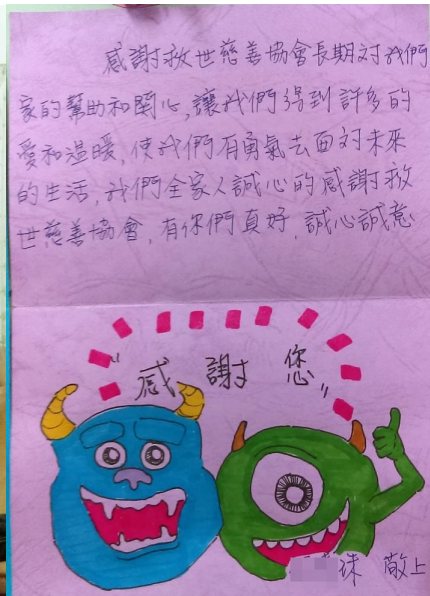 感謝救世慈善協會長期对我們
家的幫助和関心,讓我們得到許多的
愛和温暖,使我們有勇氣去面对未來
的生活,我們全家人誠心的感謝救
世慈善協會,有你們真好,誠心誠意
"感謝您"
珠 敬上